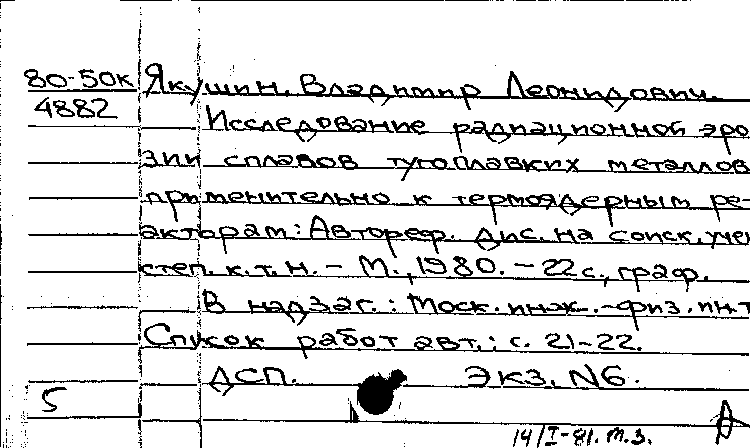 80-50к Якушин, Владимир Леонидович.
4882 Исследование радиационной эро
зии сплавов тугоплавких металлов
применительно к термоядерным ре-
акторам: Автореф. дис. на соиск. учен
степ. к.т.н. - М., 1980. - 22 с., граф.
В надзаг.: Моск. инж.-физ. ин-т
Список работ авт.: с. 21-22.
ДСП. Экз. №6.
5
14/I-81. т.з.